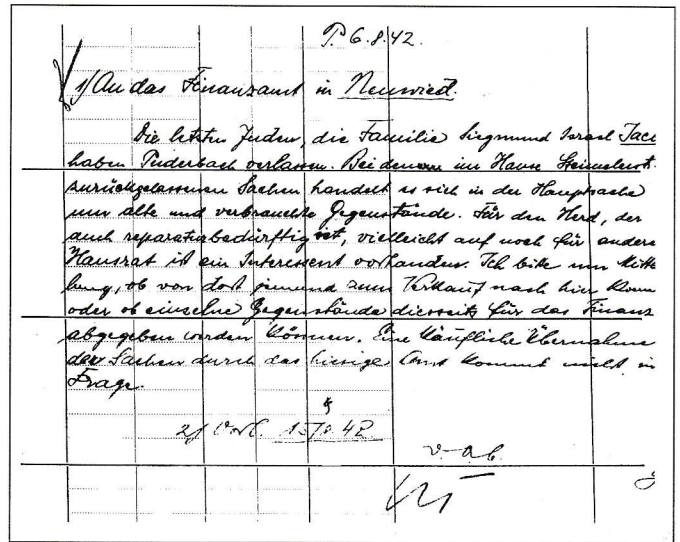 P. 6.8.42.
1/ An das Finanzamt in Neuwied.
Die letzten Juden, die Familie Siegmund Israel Jaco
haben Puderbach verlassen. Bei denen im Hause Steimelerst.
zurückgelassenen Sachen handelt es sich in der Hauptsache
um alte und verbrauchte Gegenstände. Für den Herd, der
auch reparaturbedürftig ist, vielleicht auf noch für andere
Hausrat ist ein Interessent vorhanden. Ich bitte um Mitte
lung, ob von dort jemand zum Verkauf nach hier komm
oder ob einzelne Gegenstände diesseits für das Finanz
abgegeben werden können. Eine käufliche Übernahme
der Sachen durch das hiesige Amt kommt nicht in
Frage.
2/ Vorl. 15/8.42